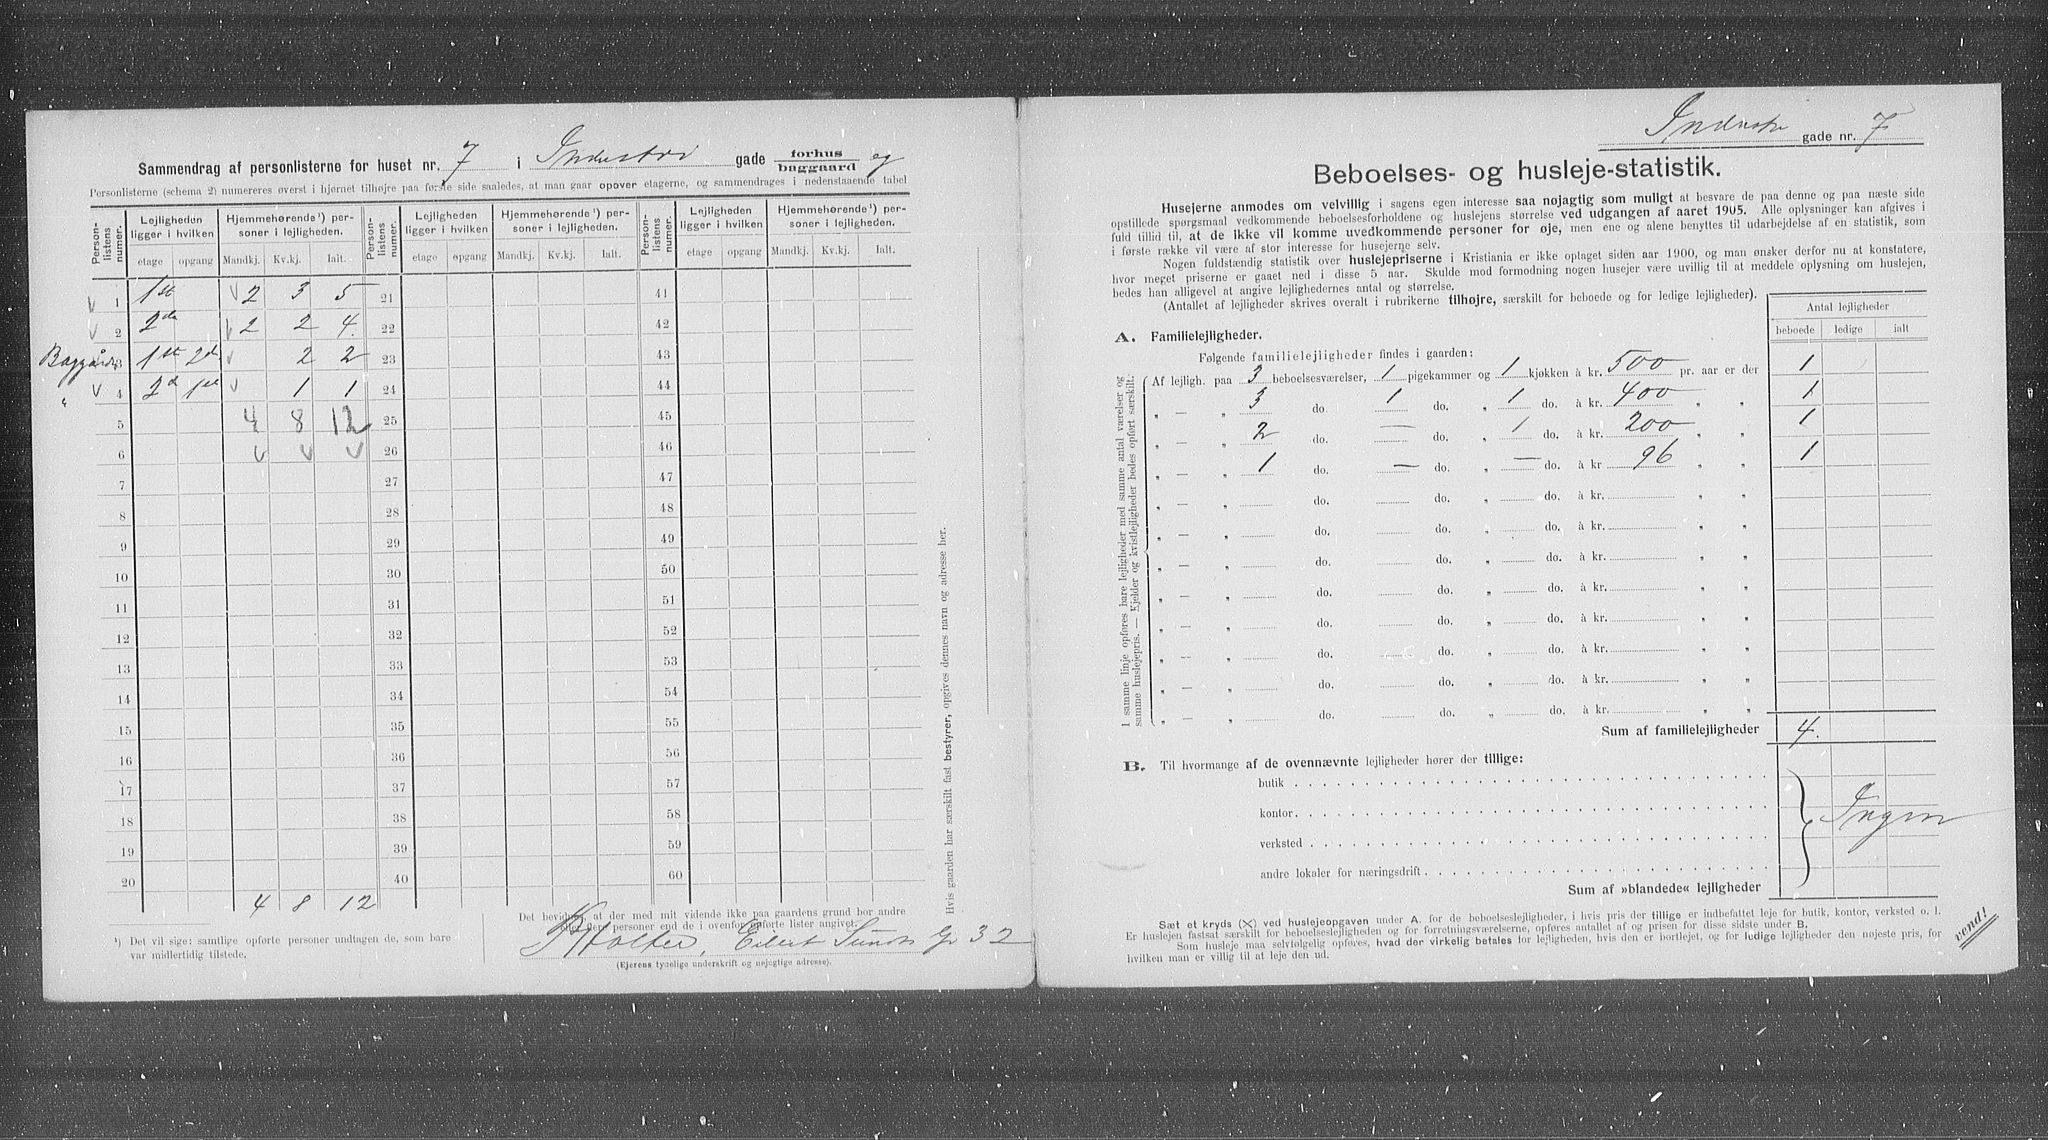 Sammendrag af personlisterne for huset nr. 7 i Industri gade forhus baggaard og
Personlisterne (schema 2) numereres øverst i hjørnet tilhøjre paa første side saaledes, at man gaar opover etagerne, og sammendrages i nedenstaaende tabel
Person-listens nummer. Lejligheden ligger i hvilken Hjemmehørende¹) personer i lejligheden. Person-listens numer. Lejligheden ligger i hvilken Hjemmehørende¹) personer i lejligheden. Person-listens numer. Lejligheden ligger i hvilken Hjemmehørende¹) personer i lejligheden.
etage opgang Mandkj. Kv.kj. Ialt. etage opgang Mandkj. Kv.kj. Ialt. etage opgang Mandkj. Kv.kj. Ialt.
v 1 1st v 2 3 5 21 41
v 2 2de v 2 2 4. 22 42
Baggård 3 1st v 2 2 23 43
" v 4 2d v 1 1 24 44
5 4 8 12 25 45
6 v v v 26 46
7 27 47
8 28 48
9 29 49
10 30 50
11 31 51
12 32 52
13 33 53
14 34 54
15 35 55
16 36 56
17 37 57
18 38 58
19 39 59
20 40 60
4 8 12
¹) Det vil sige: samtlige opførte personer undtagen de, som bare
var midlertidig tilstede.
Det bevidnes, at der med mit vidende ikke paa gaardens grund bor andre
eller flere personer end de i ovenførte lister angivet.
Holter, Eilert Sunds Gr 32
(Ejerens tydelige underskrift og nøjagtige adresse).
Hvis gaarden har særskilt fast bestyrer, opgives dennes navn og adresse her.
gade nr. 7
Beboelses- og husleje-statistik.
Husejerne anmodes om velvillig i sagens egen interesse saa nøjagtig som muligt at besvare de paa denne og paa næste side
opstillede spørgsmaal vedkommende beboelsesforholdene og huslejens størrelse ved udgangen af aaret 1905. Alle oplysninger kan afgives i
fuld tillid til, at de ikke vil komme uvedkommende personer for øje, men ene og alene benyttes til udarbejdelse af en statistik, som
i første række vil være af stor interesse for husejerne selv.
Nogen fuldstændig statistik over huslejepriserne i Kristiania er ikke optaget siden aar 1900, og man ønsker derfor nu at konstatere,
hvor meget priserne er gaaet ned i disse 5 aar. Skulde mod formodning nogen husejer være uvillig til at meddele oplysning om huslejen,
bedes han alligevel at angive lejlighedernes antal og størrelse.
(Antallet af lejligheder skrives overalt i rubrikerne tilhøjre, særskilt for beboede og for ledige lejligheder).
Antal lejligheder
beboede ledige ialt
A. Familielejligheder.
Følgende familielejligheder findes i gaarden:
I samme linje opføres bare lejligheder med samme antal værelser og
samme huslejepris. — Kjelder og kvistlejligheder bedes opført særskilt.
Af lejligh. paa 3 beboelsesværelser, 1 pigekammer og 1 kjøkken à kr. 500 pr. aar er der 1
" — " 3 do. 1 do. " 1 do. à kr. 400 " " 1
" — " 2 do. — do. " 1 do. à kr. 200 " " 1
" — " 1 do. — do. " — do. à kr 96 " " 1
" — " do. do. " do. à kr. " "
" — " do. do. " do. à kr. " "
" — " do. do. " do. à kr. " "
" — " do. do. " do. à kr. " "
" — " do. do. " do. à kr. " "
" — " do. do. " do. à kr. " "
" — " do. do. " do. à kr. " "
" — " do. do. " do. à kr. " "
Sum af familielejligheder 4.
B. Til hvormange af de ovennævnte lejligheder hører der tillige:
butik
kontor
verksted
andre lokaler for næringsdrift
Ingen
Sum af »blandede« lejligheder
Sæt et kryds (X) ved huslejeopgaven under A. for de beboelseslejligheder, i hvis pris der tillige er indbefattet leje for butik, kontor, verksted o. l.
Er huslejen fastsat særskilt for beboelseslejligheden og for forretningsværelserne, opføres antallet af og prisen for disse sidste under B.
Som husleje maa selvfølgelig opføres, hvad der virkelig betales for lejligheden, hvis den er bortlejet, og for ledige lejligheder den nøjeste pris, for
hvilken man er villig til at leje den ud.
vend!